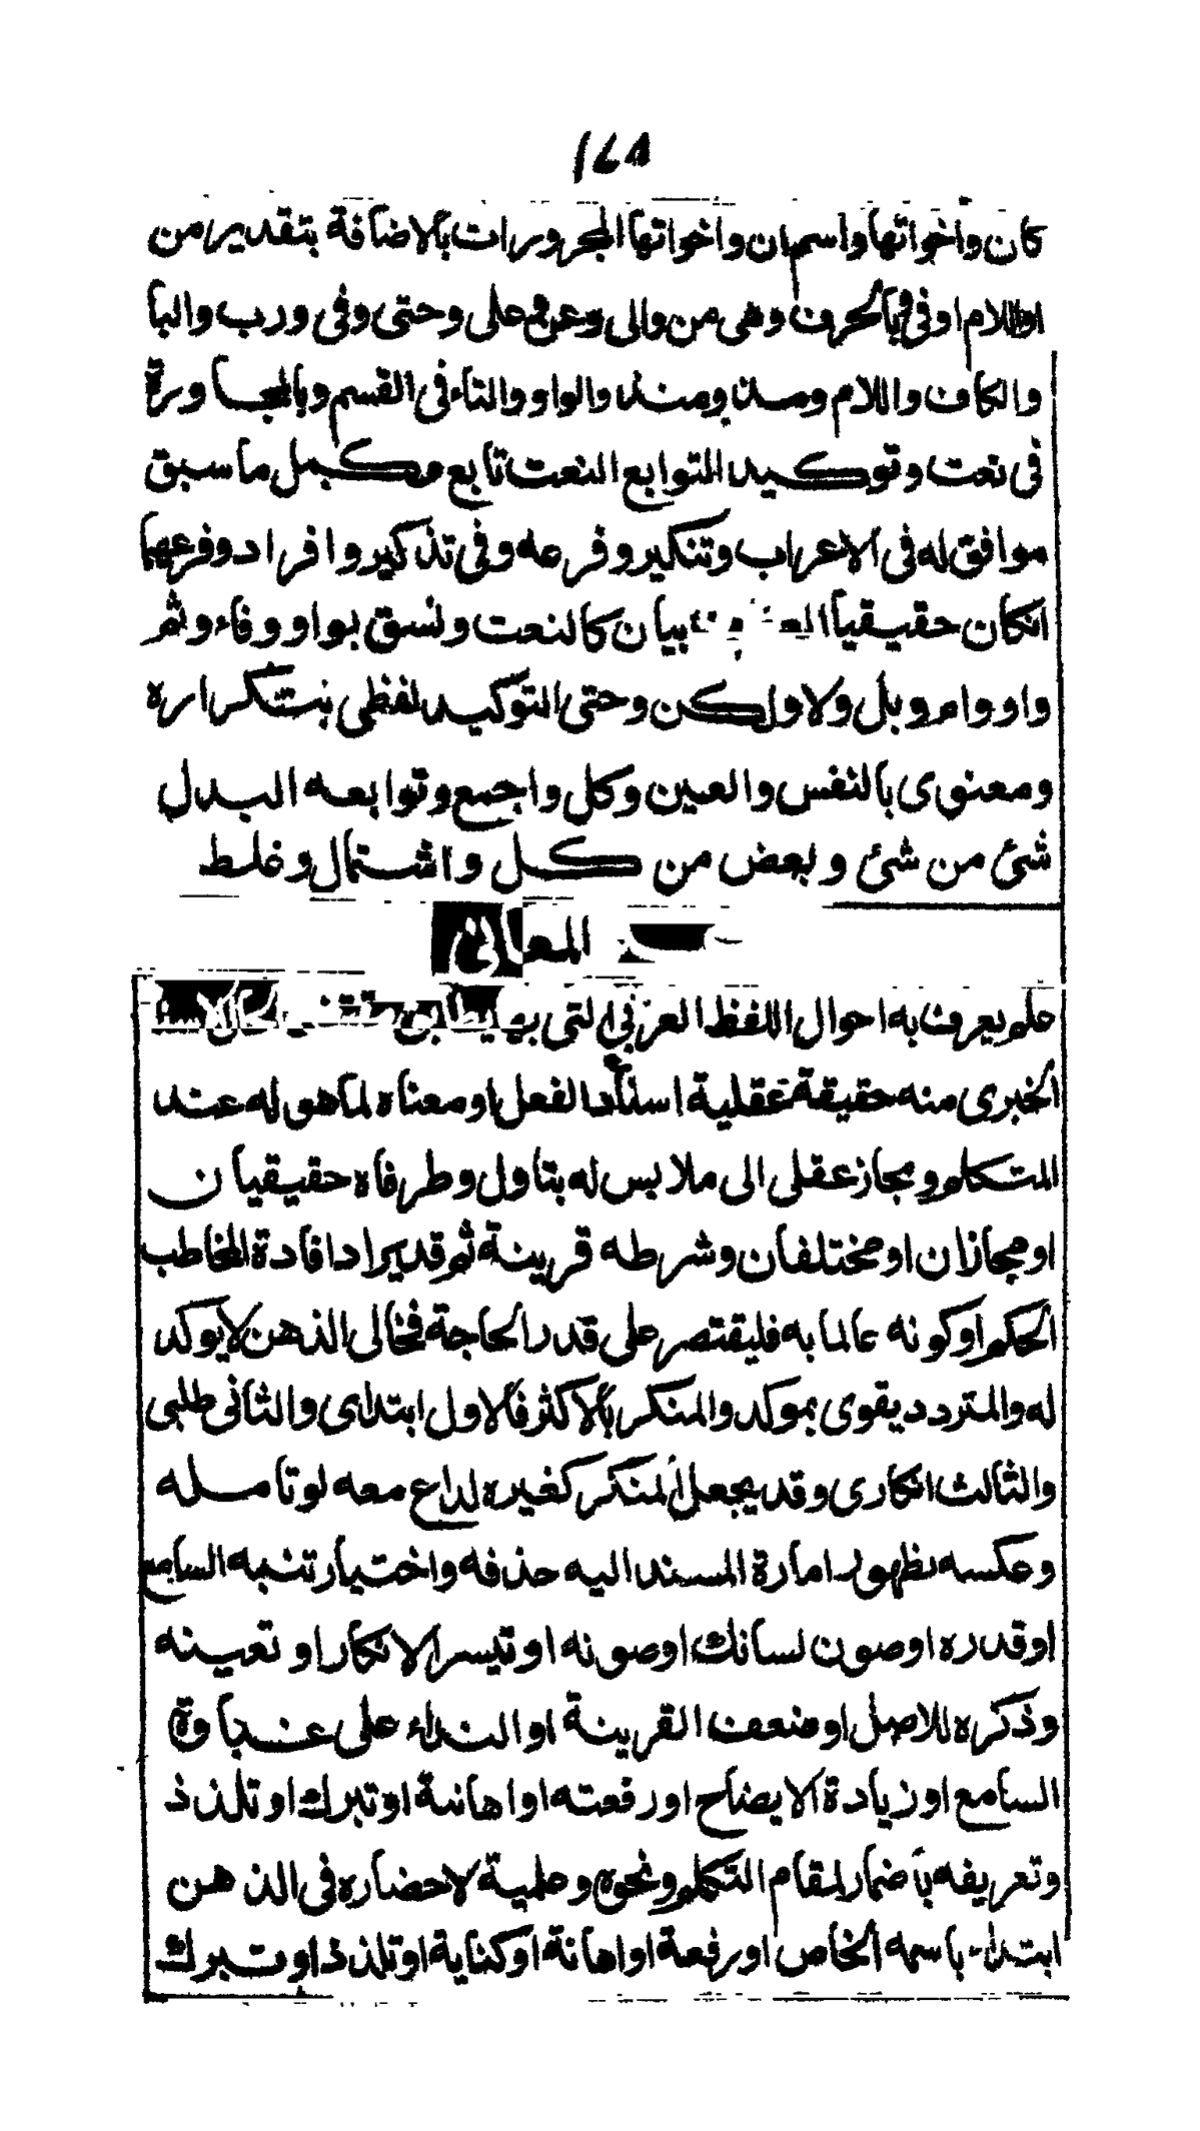 كان واخواتها واسم ان واخواتها المجرورات بالاضافة بتقدير من
او اللام او فى وبالحرف وهى من والى وعن وعلى وحتى وفى ورب والبا
والكاف واللام ومذ ومنذ والواو والتاء فى القسم وبالمجاورة
فى نعت وتوكيد التوابع النعت تابع مكمل ما سبق
موافق له فى الاعراب وتنكير وفرعه وفى تذكير وافراد وفرعهما
انكان حقيقيا بيان كالنعت ونسق بواو وفاء وثم
واو وام وبل ولا ولكن وحتى التوكيد لفظى بتكراره
ومعنوى بالنفس والعين وكل واجمع وتوابعه البدل
شئ من شئ وبعض من كل واشتمال وغلط
المعانى
علم يعرف به احوال اللفظ العربى التى بها يطابق
الخبرى منه حقيقة عقلية اسناد الفعل او معناه لما هو له عند
المتكلم ومجاز عقلى الى ملابس له بتاول وطرفاه حقيقيان
او مجازان او مختلفان وشرطه قرينة ثم قد يراد افادة المخاطب
الحكم او كونه عالما به فليقتصر على قدر الحاجة فخالى الذهن لا يوكد
له والمتردد يقوى بموكد والمنكر باكثر فالاول ابتداى والثانى طلبى
والثالث انكارى وقد يجعل المنكر كغيره لداع معه لو تامله
وعكسه لظهور امارة المسند اليه حذفه واختيار تنبه السامع
او قدره او صون لسانك او صونه او تيسر الانكار او تعينه
وذكره للاصل او ضعف القرينة او النداء على غباوة
السامع او زيادة الايضاح او رفعته او اهانة او تبرك او تلذذ
وتعريفه باضمار لمقام التكلم ونحوه وعلمية لاحضاره فى الذهن
ابتداء باسمه الخاص او رفعة او اهانة او كناية او تلذذ او تبرك